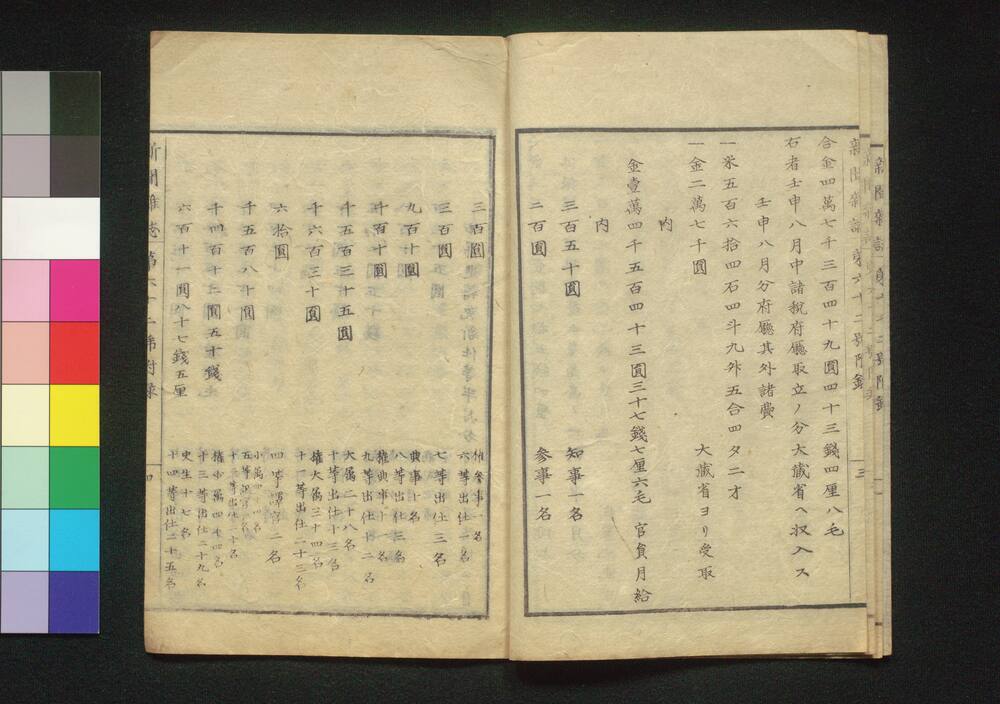 新聞雜誌第六十二號附錄
三
合金四萬七千三百四十九圓四十三錢四厘八毛
右者壬申八月中諸税府廳取立ノ分大藏省ヘ収入ス
壬申八月分府廳其外諸費
一米五百六拾四石四斗九升五合四タ二才
一金二萬七千圓　大藏省ヨリ受取
内
金壹萬四千五百四十三圓三十七錢七厘六毛　官員月給
内
三百五十圓　知事一名
二百圓　參事一名
三百圓　權參事一名　六等出仕一名
三百圓　七等出仕三名
九百十圓　典事十名　八等出仕三名
千百十圓　權典事十一名　九等出仕十二名
千五百三十五圓　大屬二十八名　十等出仕十三名
千六百三十圓　權大屬三十四名　十一等出仕二十三名
六拾圓　二名
千五百八十圓
千四百十二圓五十錢　權少屬四十四名　十三等出仕二十九名
六百十一圓八十七錢五厘　史生十七名　十四等出仕二十五名